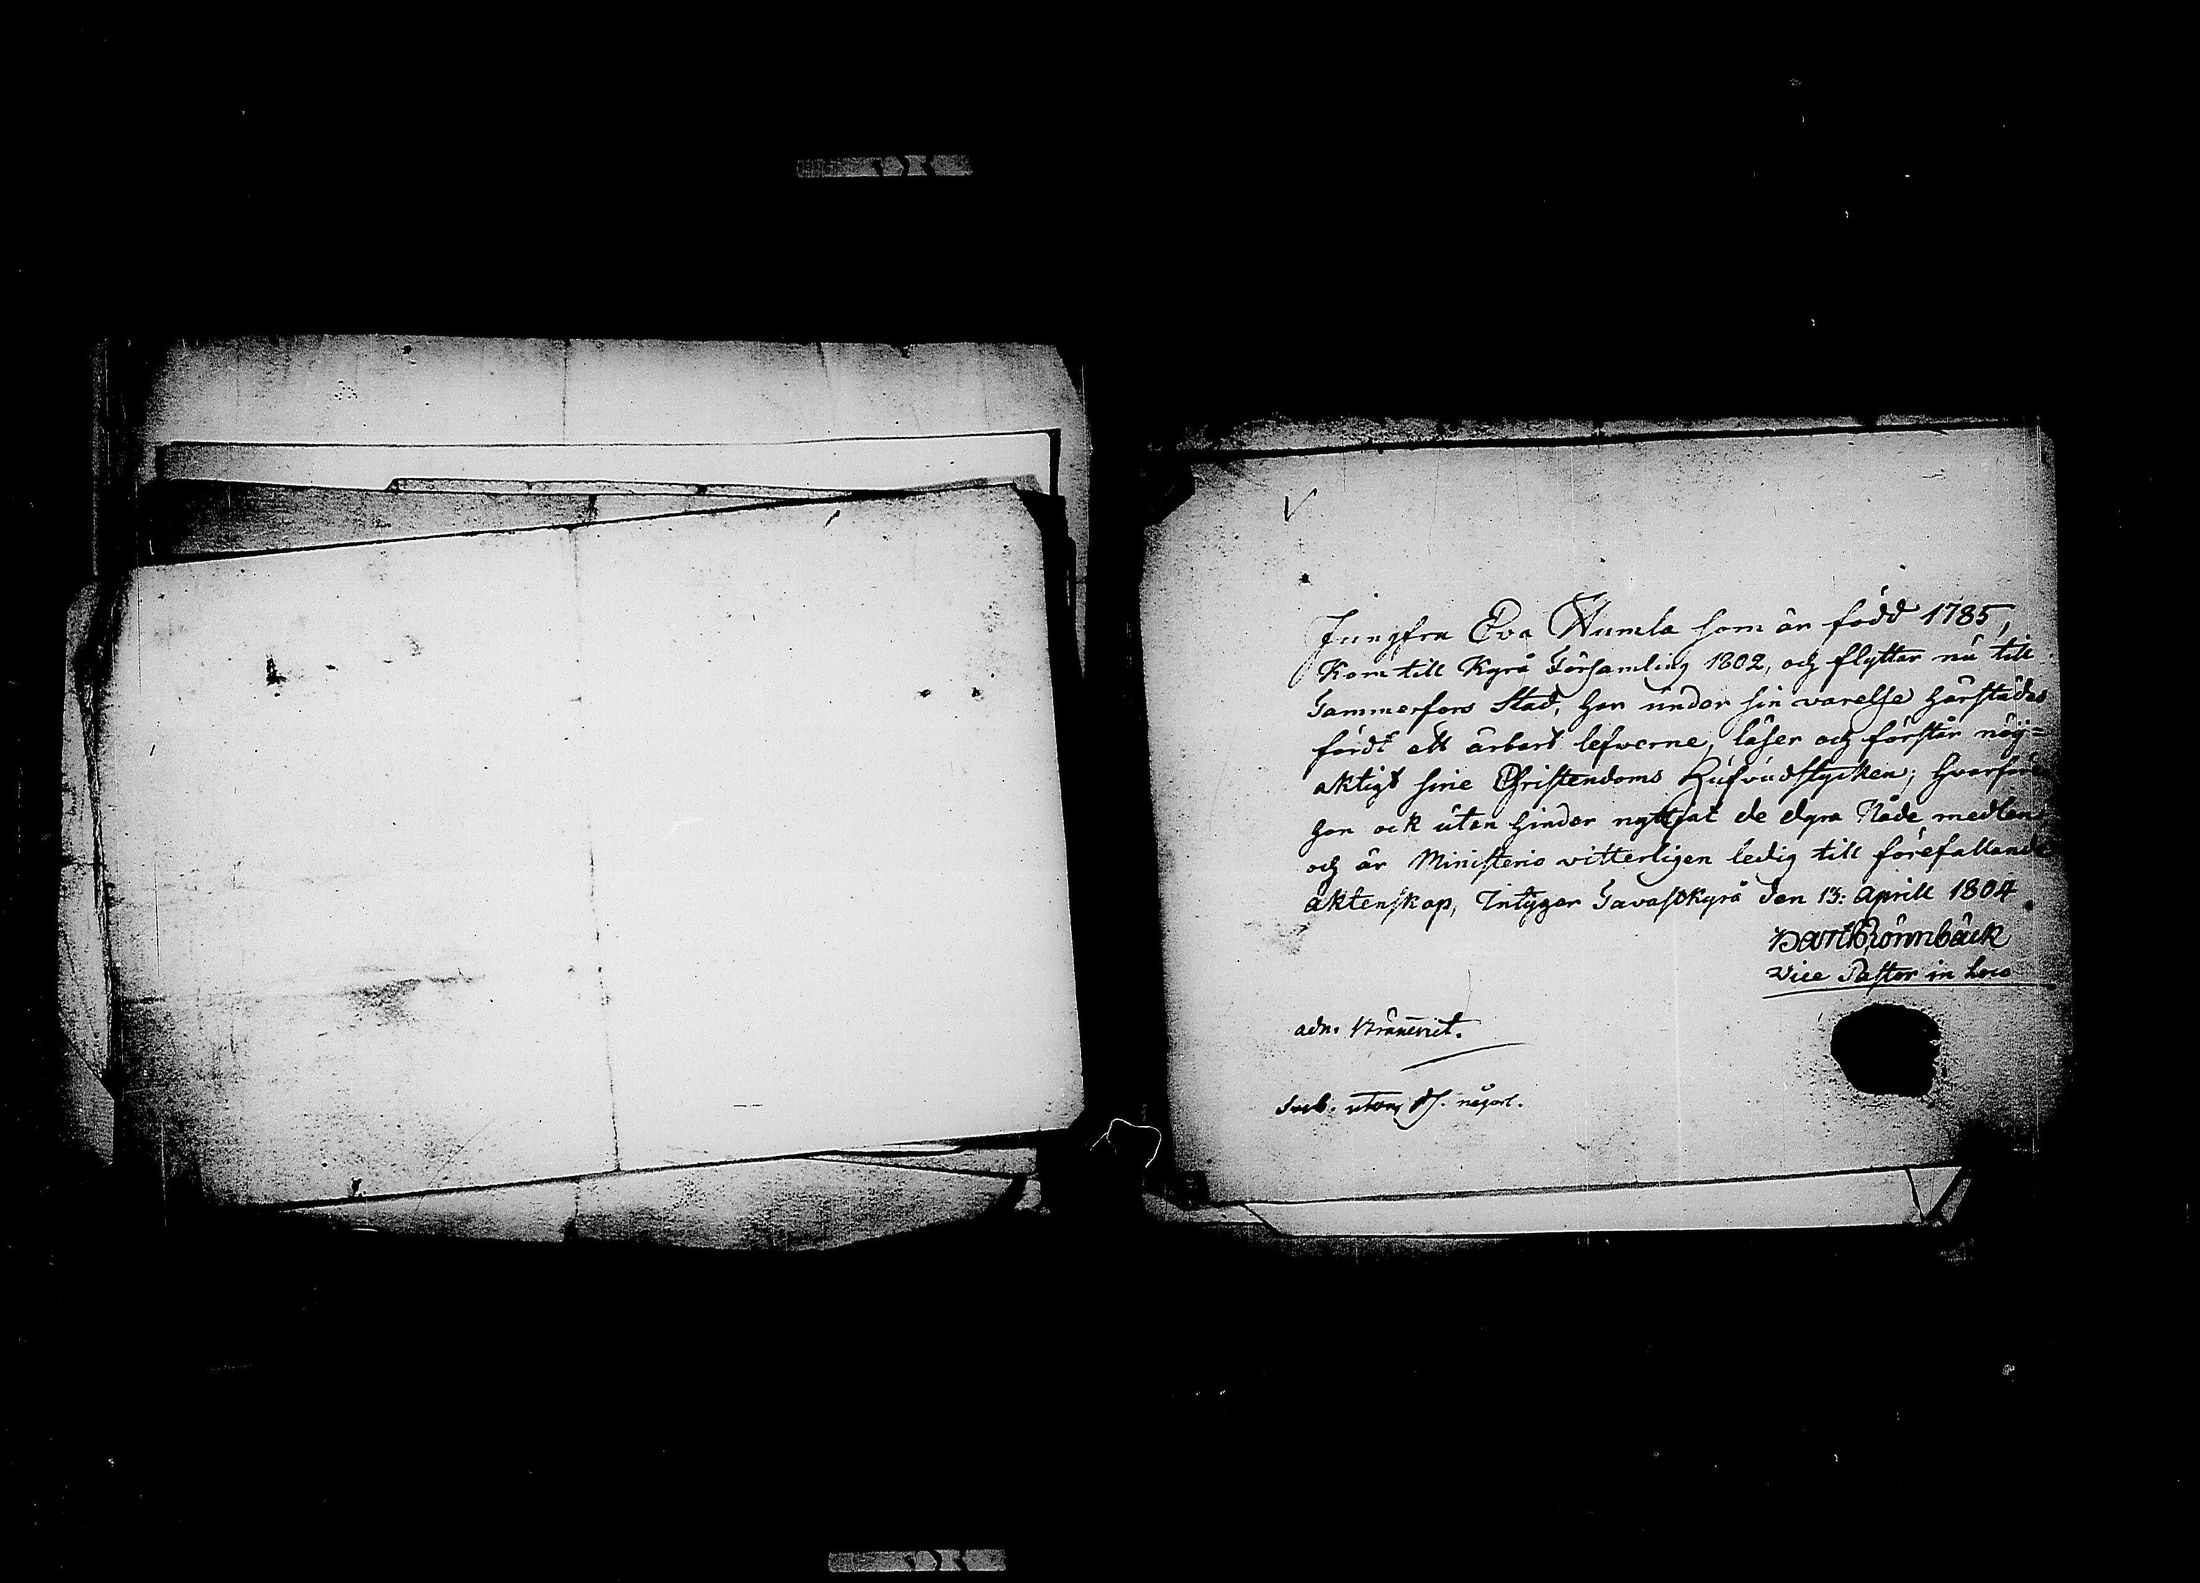 Jungfru Eva Humla som är född 1785,
Kom till Kyrå Församling 1802, och flyttar nu till
Tammerfors Stad, har under sin varelse härstädes
fördt ett ärbart lefverne, läser och förstår nöij=
aktigt sine Christendoms Hufvudstycken; hvarföre
hon ock utan hinder nyttjat de dyra Nåde medlen
och är Ministerio vitterligen ledig till förefallande
äktenskap, Intygar Tavastkyrå den 13: Aprill 1804
Rönnbäck
Vice Pastor in Loco
adn.
utan någorl.